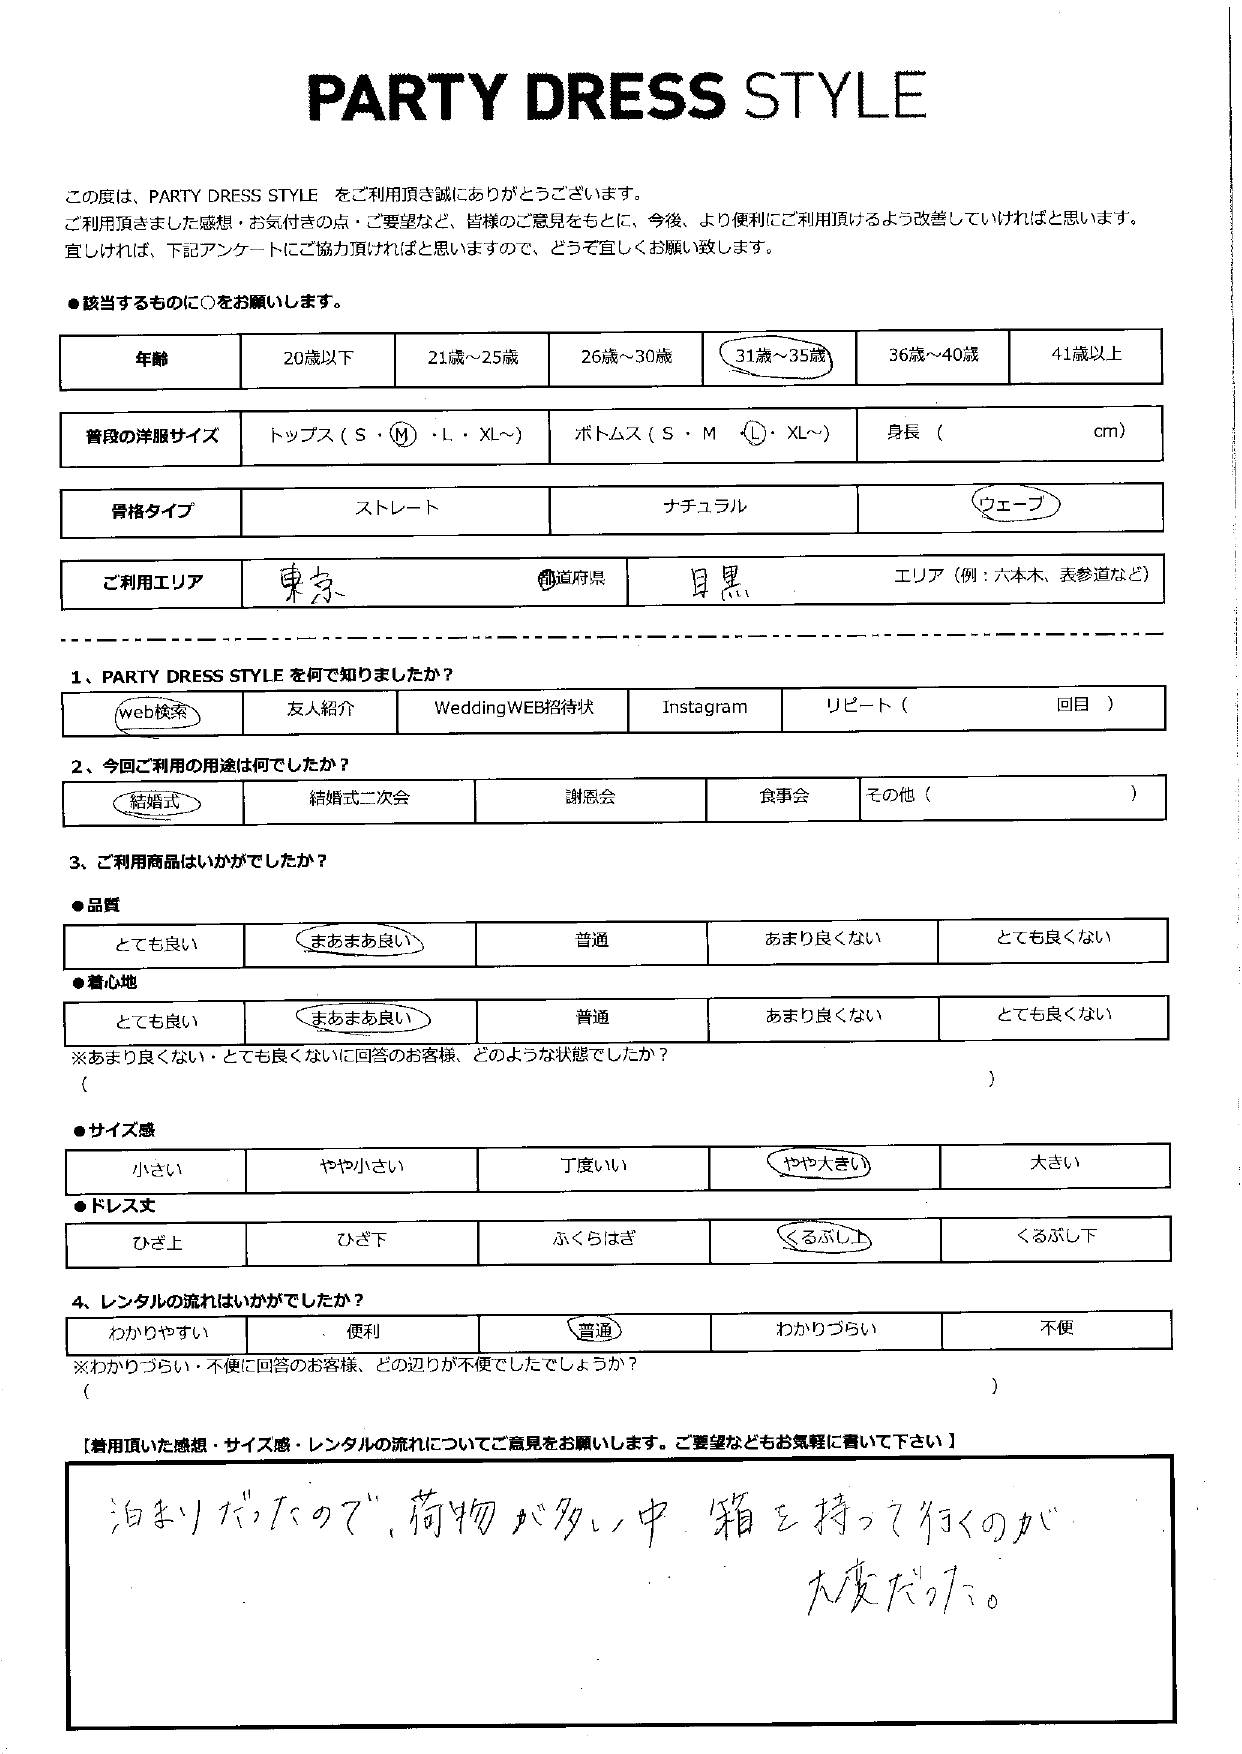 PARTY DRESS STYLE
この度は、PARTY DRESS STYLE をご利用頂き誠にありがとうございます。
ご利用頂きました感想・お気付きの点・ご要望など、皆様のご意見をもとに、今後、より便利にご利用頂けるよう改善していければと思います。
宜しければ、下記アンケートにご協力頂ければと思いますので、どうぞ宜しくお願い致します。
●該当するものに○をお願いします。
年齢 20歳以下 21歳～25歳 26歳～30歳 31歳～35歳 36歳～40歳 41歳以上
普段の洋服サイズ トップス ( S ・ M ・ L ・ XL～) ボトムス ( S ・ M ・ L ・ XL～) 身長 ( cm)
骨格タイプ ストレート ナチュラル ウェーブ
ご利用エリア 東京 都道府県 目黒 エリア（例：六本木、表参道など）
1、PARTY DRESS STYLE を何で知りましたか？
web検索 友人紹介 WeddingWEB招待状 Instagram リピート ( 回目 )
2、今回ご利用の用途は何でしたか？
結婚式 結婚式二次会 謝恩会 食事会 その他 ( )
3、ご利用商品はいかがでしたか？
●品質
とても良い まあまあ良い 普通 あまり良くない とても良くない
●着心地
とても良い まあまあ良い 普通 あまり良くない とても良くない
※あまり良くない・とても良くないに回答のお客様、どのような状態でしたか？
( )
●サイズ感
小さい やや小さい 丁度いい やや大きい 大きい
●ドレス丈
ひざ上 ひざ下 ふくらはぎ くるぶし上 くるぶし下
4、レンタルの流れはいかがでしたか？
わかりやすい 便利 普通 わかりづらい 不便
※わかりづらい・不便に回答のお客様、どの辺りが不便でしたでしょうか？
( )
【着用頂いた感想・サイズ感・レンタルの流れについてご意見をお願いします。ご要望などもお気軽に書いて下さい】
泊まりだったので、荷物が多い中、箱を持って行くのが
大変だった。